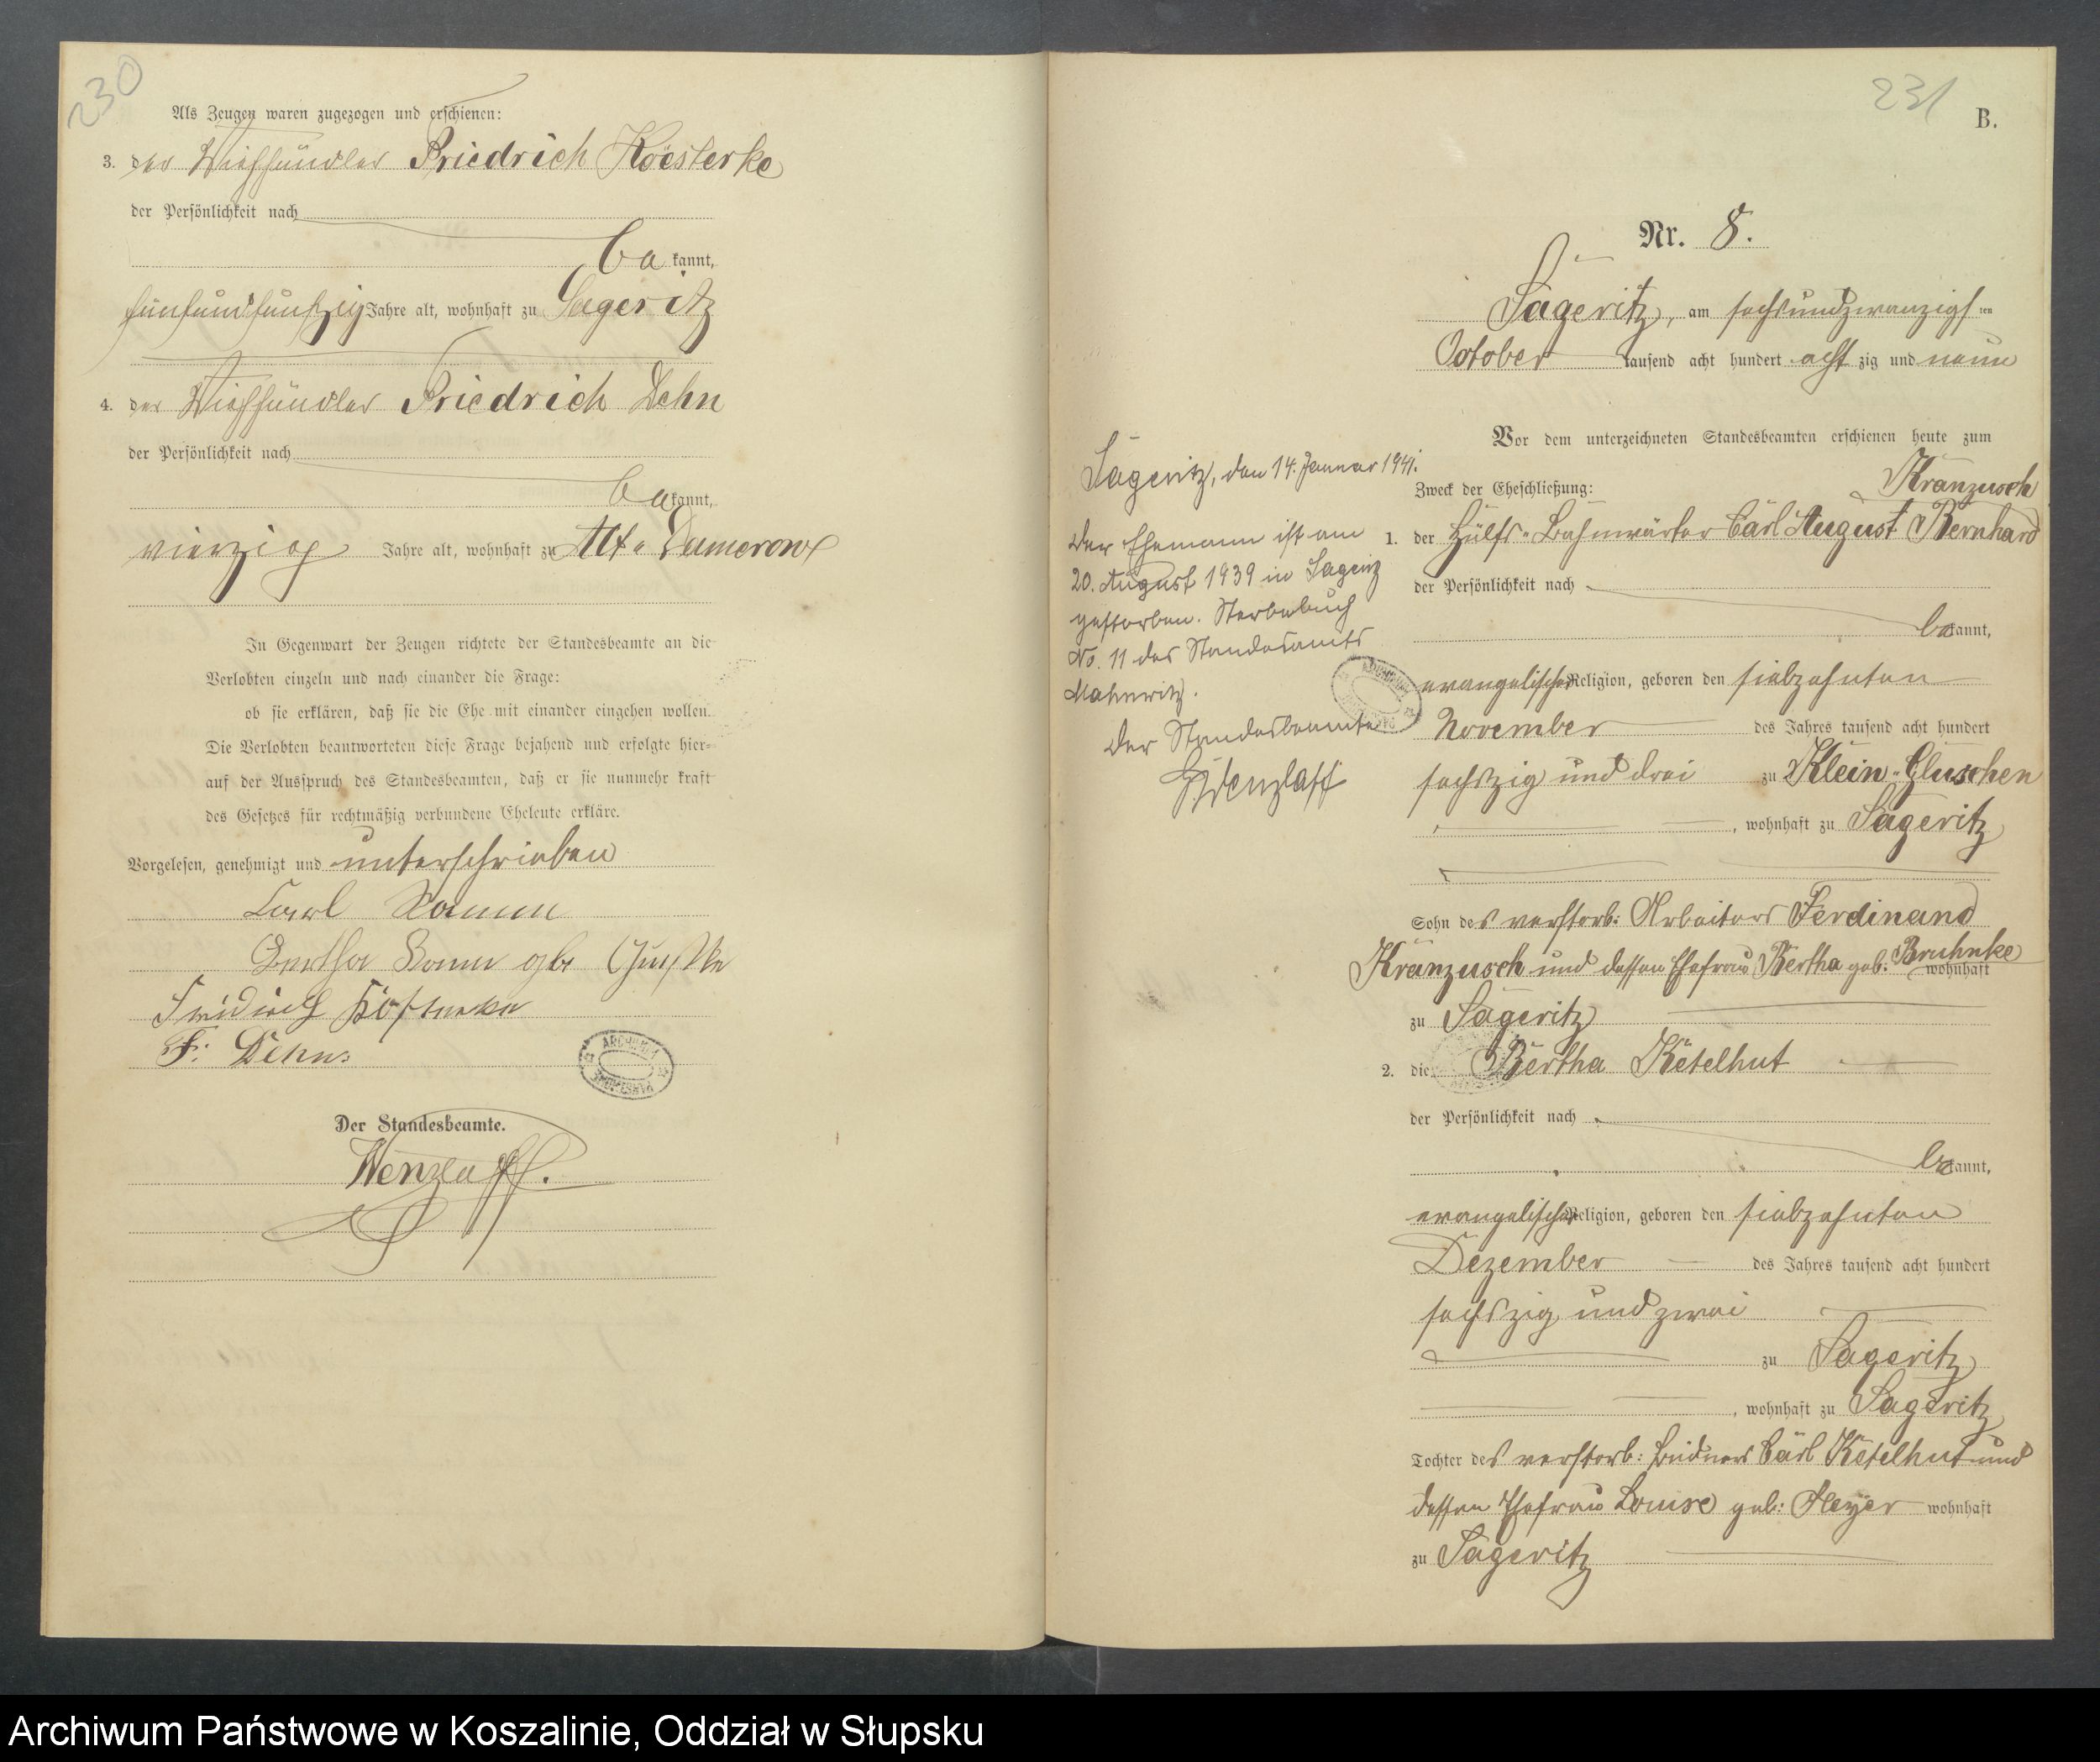 230
Als Zeugen waren zugezogen und erschienen:
3. der Viehhändler Friedrich Koesterke
der Persönlichkeit nach
be kannt,
fünfundfünfzig Jahre alt, wohnhaft zu Sageritz
4. der Viehhändler Friedrich Dehn
der Persönlichkeit nach
be kannt,
vierzig Jahre alt, wohnhaft zu Alt-Damerow
In Gegenwart der Zeugen richtete der Standesbeamte an die
Verlobten einzeln und nach einander die Frage:
ob sie erklären, daß sie die Ehe mit einander eingehen wollen.
Die Verlobten beantworteten diese Frage bejahend und erfolgte hier-
auf der Ausspruch des Standesbeamten, daß er sie nunmehr kraft
des Gesetzes für rechtmäßig verbundene Eheleute erkläre.
Vorgelesen, genehmigt und unterschrieben
Carl Ramm
Bertha Ramm geb
F. Dehn.
Der Standesbeamte.
Wenzlaff.
231
B.
Nr. 8.
Sageritz, am sechsundzwanzigs ten
October tausend acht hundert acht zig und neun
Vor dem unterzeichneten Standesbeamten erschienen heute zum
Zweck der Eheschließung: Kranzusch
1. der Hülfs-Bahnwärter Carl August Bernhard
der Persönlichkeit nach
be kannt,
evangelischer Religion, geboren den siebzehnten
November des Jahres tausend acht hundert
sechszig und drei zu Klein-Gluschen
, wohnhaft zu Sageritz
Sohn des verstorb: Arbeiters Ferdinand
Kranzusch und dessen Ehefrau Bertha geb: Bruhnke wohnhaft
zu Sageritz
2. die Bertha Ketelhut
der Persönlichkeit nach
be kannt,
evangelischer Religion, geboren den siebzehnten
Dezember des Jahres tausend acht hundert
sechszig und zwei
zu Sageritz
, wohnhaft zu Sageritz
Tochter des verstorb: Büdners Carl Ketelhut und
dessen Ehefrau Louise geb: Heyer wohnhaft
zu Sageritz
Sageritz, den 14. Januar 1941.
Der Ehemann ist am
20. August 1939 in Sageritz
gestorben. Sterbebuch
No. 11 des Standesamts
Mahnwitz.
Der Standesbeamte
Archiwum Państwowe w Koszalinie, Oddział w Słupsku